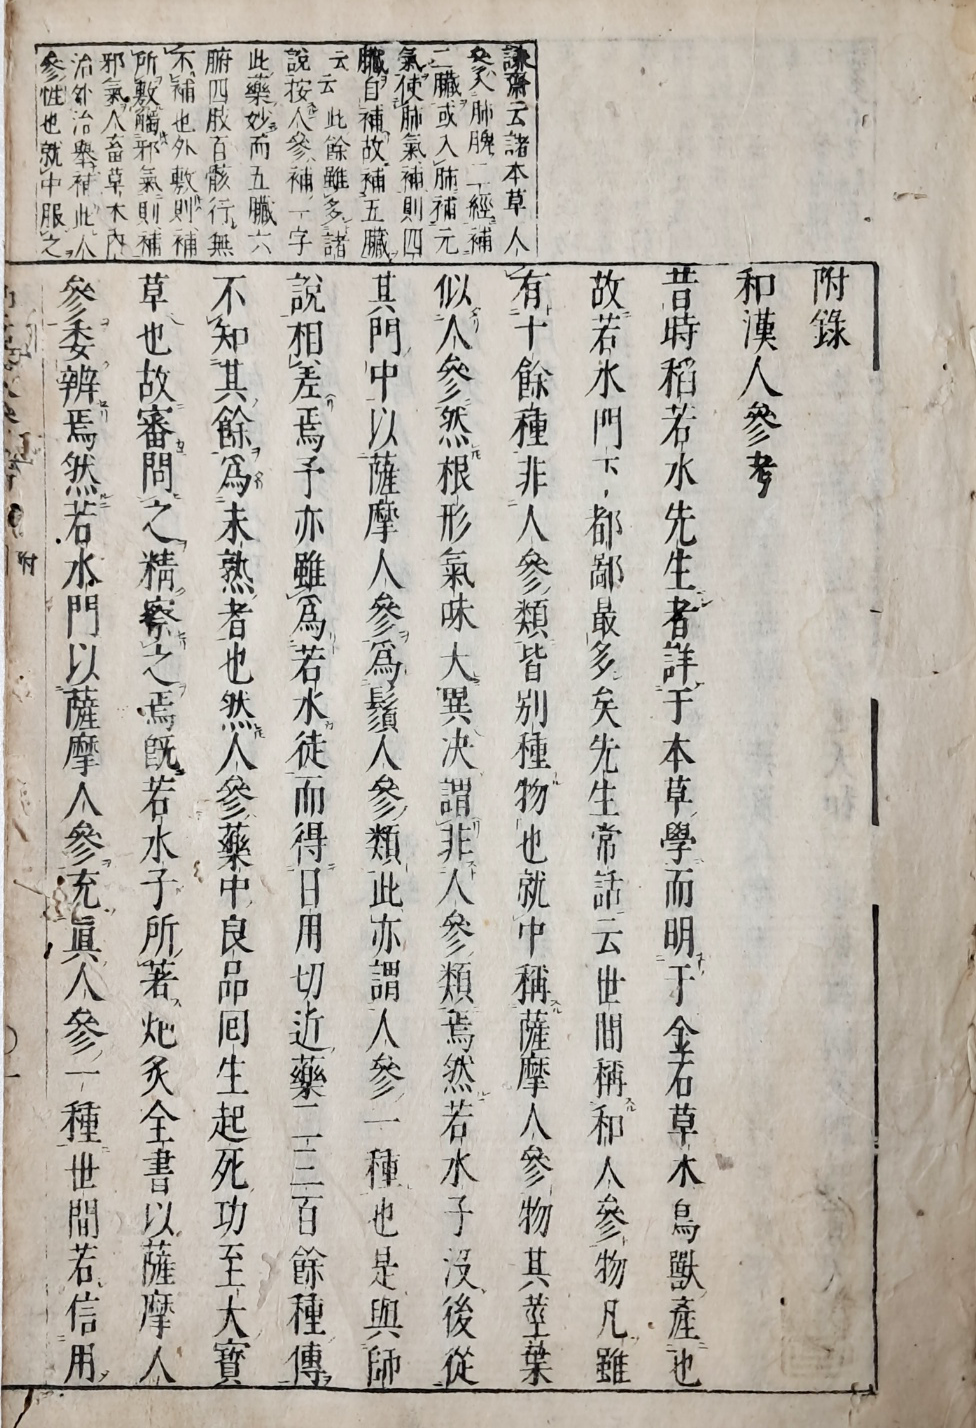 謙齋云諸本草人
參入肺脾二經補
二臟或入肺補元
氣使肺氣補則四
臟自補故補五臟
云云此餘雖多諸
說按人參補一字
此藥妙而五臟六
腑四肢百骸行無
不補也外敷則補
所敷觸邪氣則補
邪氣人畜草木內
治外治舉補此人
參性也就中服之
附錄
和漢人參考
昔時稻若水先生者詳于本草學而明于金石草木鳥獸產也
故若水門下都鄙最多矣先生常話云世間稱和人參物凡雖
有十餘種非人參類皆別種物也就中稱薩摩人參物其莖葉
似人參然根形氣味大異決謂非人參類焉然若水子沒後從
其門中以薩摩人參爲鬚人參類此亦謂人參一種也是與師
說相差焉予亦雖爲若水徒而得日用切近藥二三百餘種傳
不知其餘爲未熟者也然人參藥中良品囘生起死功至大寶
草也故審問之精察之焉旣若水子所著炮炙全書以薩摩人
參委辨焉然若水門以薩摩人參充眞人參一種世間若信用
附
一